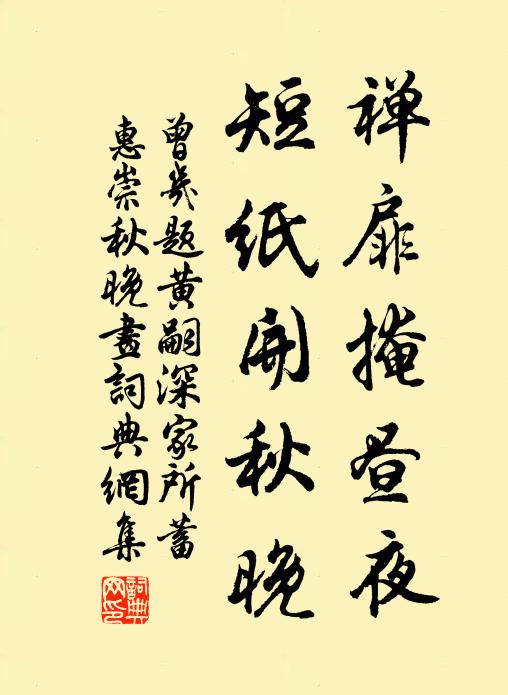 禅扉掩昼夜
短纸开秋晚
曾幾题黄嗣深家所蓄
惠崇秋晚畫詞典網集
詞典網印